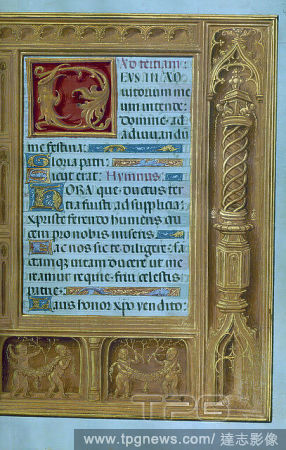 Ad tertiam:
EUS IN AD
iutorium me
um intende:
domine ad
adiuvandũ
me festina:
Gloria patri:
Sicut erat: Hymnus:
HORA que ductus ter
tia fuisti ad supplicia:
xpriste ferendo humeris cru
cem pro nobis miseris
Fac nos sic te diligere: sa
tamque vitam ducere ut me
reamur requie frui celestis
patrie:
Laus honor xpo vendito:
TPG
www.tpgnews.com/ 達志影像